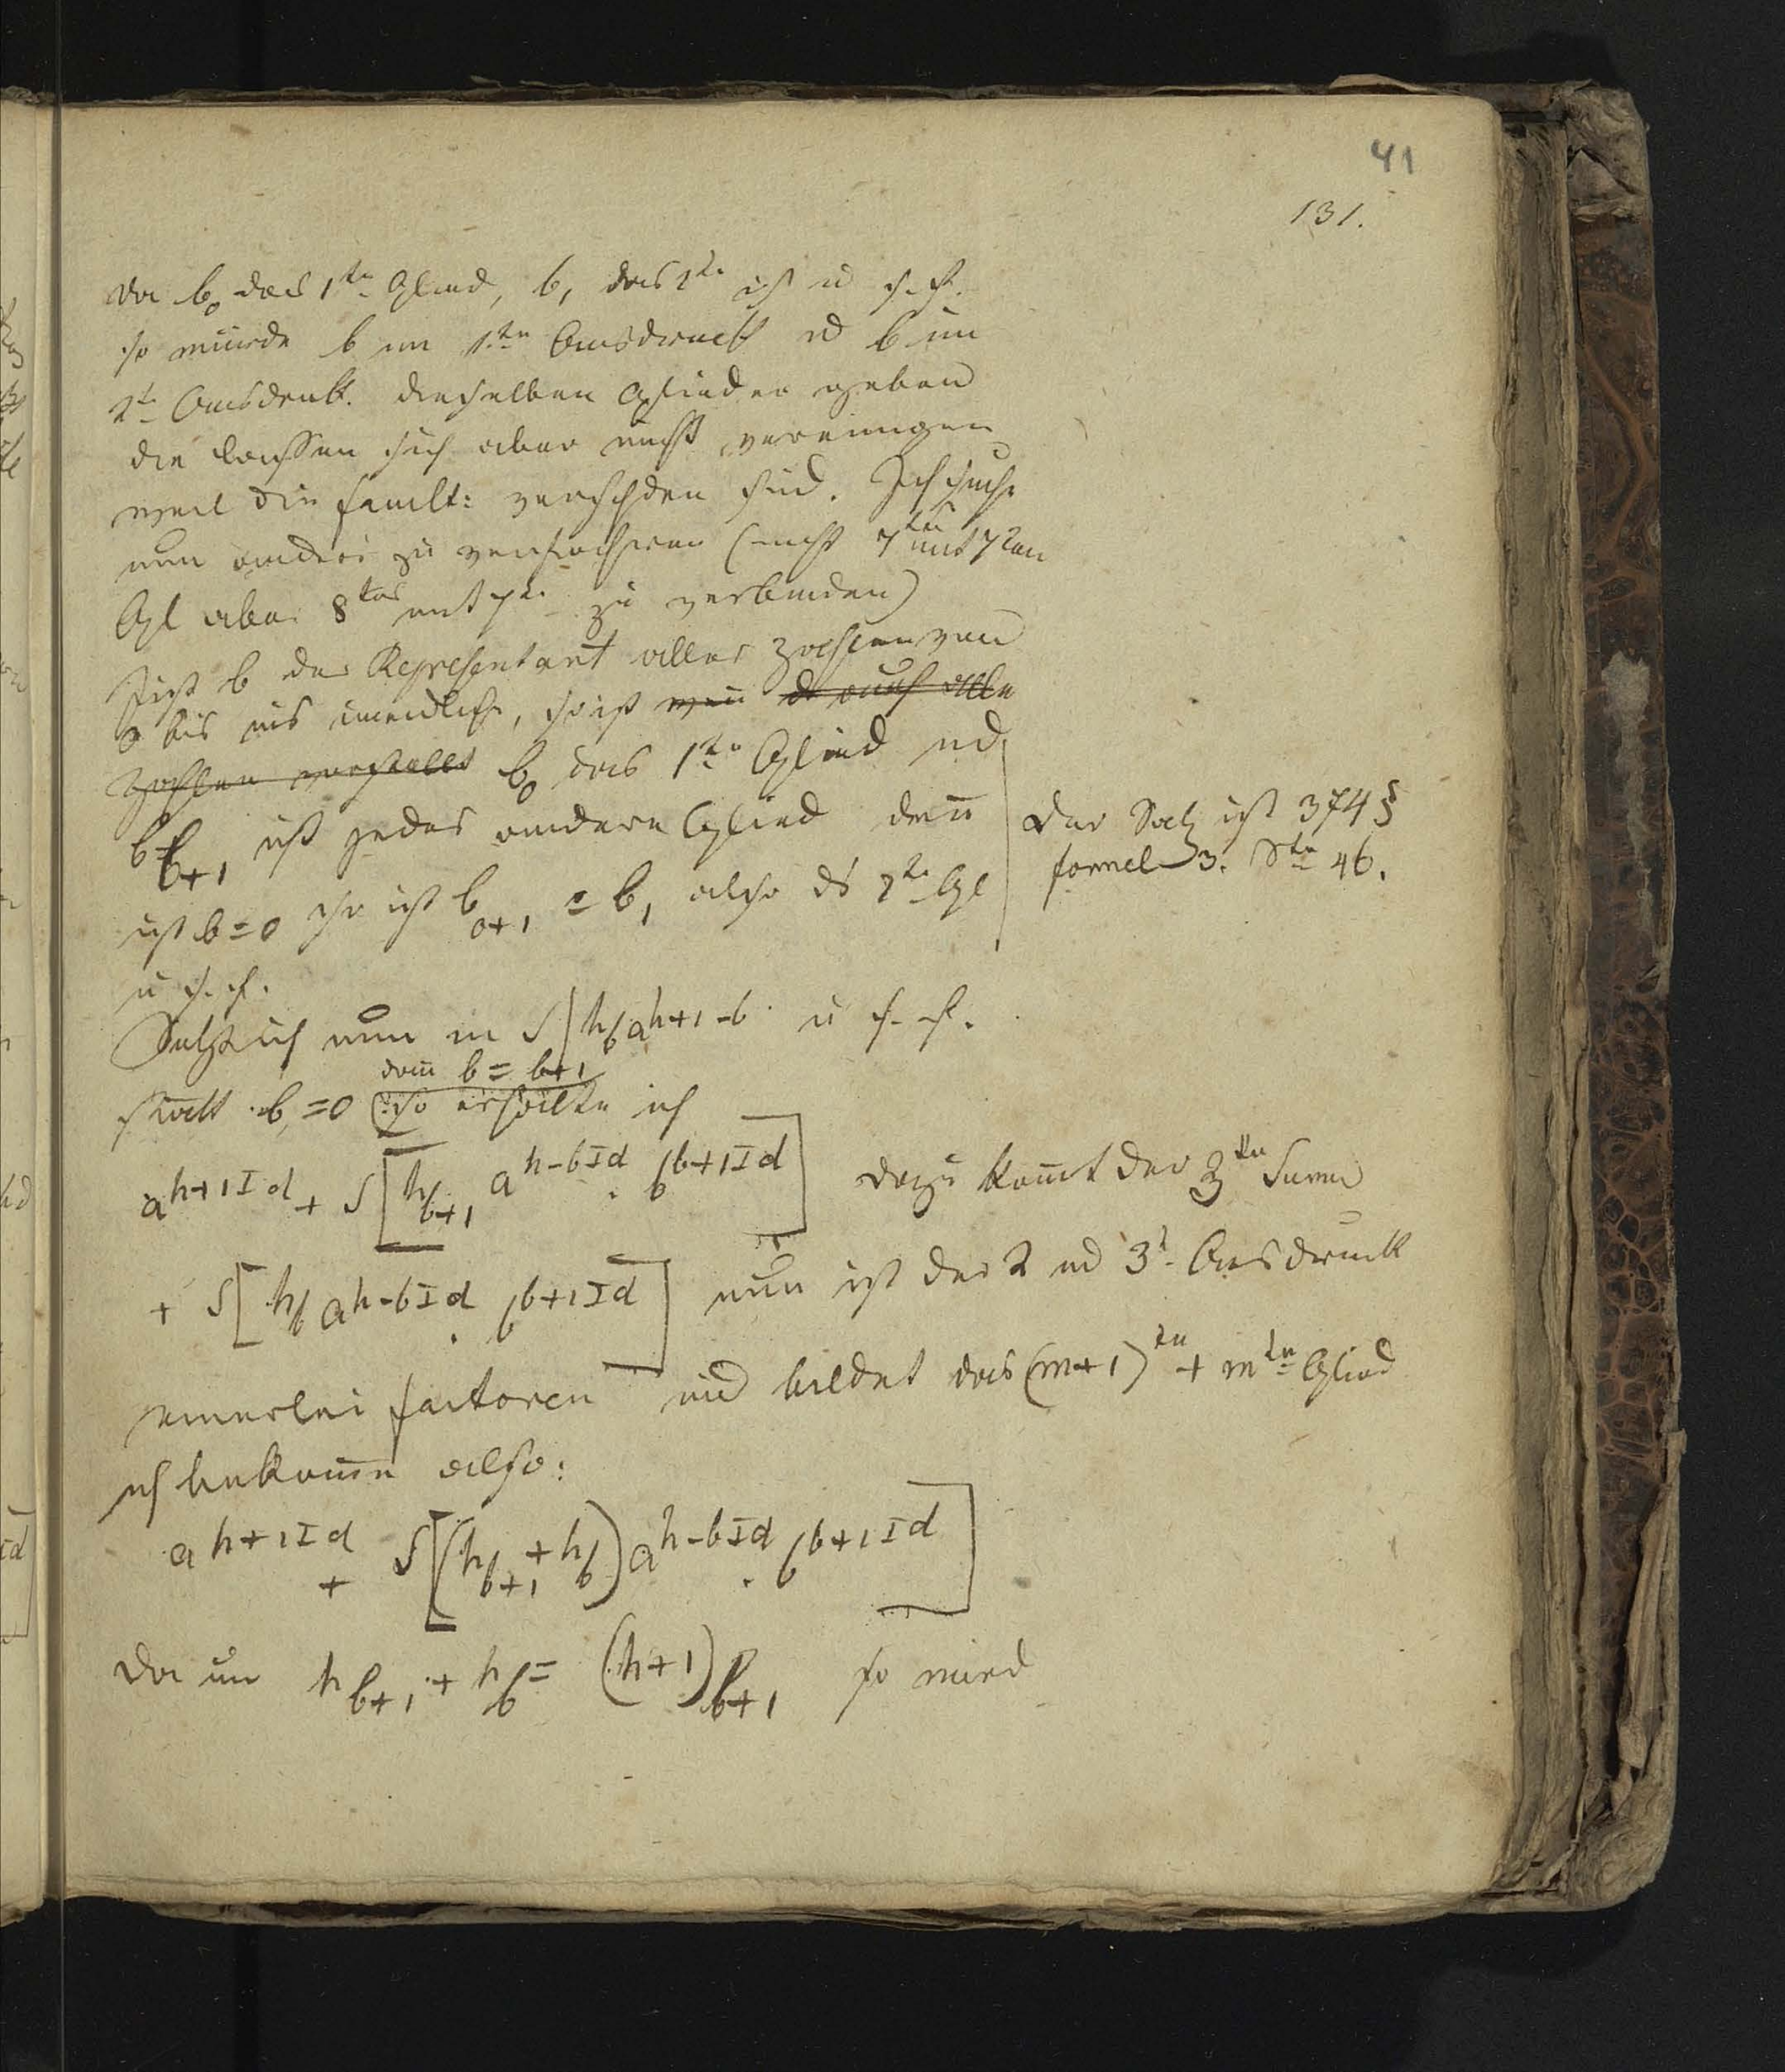 41
131.
da b₀ das 1te Glied, b₁ das 2te ist u s. f.
so würde b im 1ten Ausdruck ud b im
2t Ausdruk. dieselben Glieder geben
die lassen sich aber nicht vereinigen
weil die facult: verschden sind. Ich suche
nun anders zu verfahren (nicht 7ten mit 7ten
Gl aber 8tes mit 7te zu verbinden)
Ist b der Representant aller Zahlen von
0 bis ins unendliche, so ist wen auch alle
Zahlen vorstellt b₀ das 1te Glied ud
b_{b+1} ist jedes andere Glied den̄
ist b=0 so ist b_{0+1} = b₁ also ds 2te Gl
u s. f.
Der Satz ist 374 §
formel 3. Ste 46.
Setze ich nun in S[h_b a^{h+1-b} u s. f.
dan̄ b = b+1
statt b, =0 so erhalte ich
a^{h+1 I d} + S[h_{b+1} a^{h-b I d} . b^{b+1 I d}] dazu kom̄t der 3te Sum̄e
+ S[h_b a^{h-b I d} . b^{b+1 I d}] nun ist der 2 ud 3t Ausdruck
einerlei factoren und bildet das (m+1)te + mte Glied
ich bekom̄e also:
a^{h+1 I d} + S[(h_{b+1} + h_b) a^{h-b I d} . b^{b+1 I d}]
Da nun h_{b+1} + h_b = (h+1)_{b+1} so wird